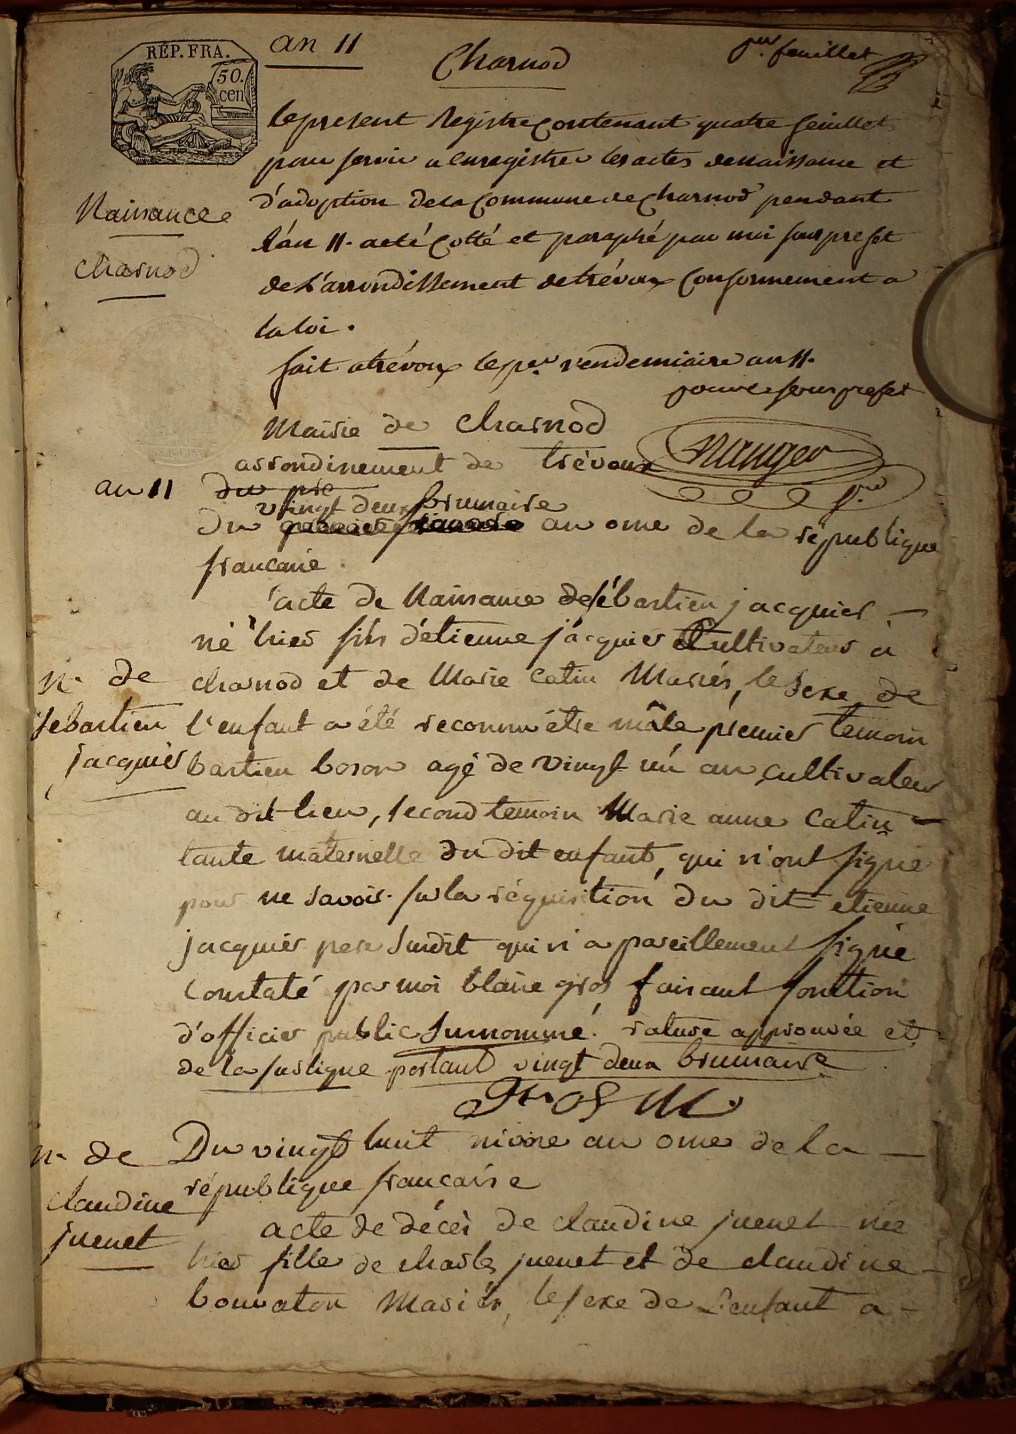 RÉP. FRA.
50.
cen
an 11
Charnod
per. feuillet
Le present Registre Contenant quatre feuillets
pour servir a Enregistrer les actes de naissance et
d'adoption de la Commune de Charnod pendant
l'an 11. a eté Cotté et paraphé par moi sous prefet
de L'arrondissement de trévoux Conformement a
la loi.
fait a trévoux le per. vendemiaire an 11.
pour le sous prefet
Naisance
charnod
Mairie de charnod
arrondinement de trévoux
an 11
du pre
vingt deux brumaire
Du an onze de la république
francaise.
acte de Naisance de sébastien jacquier
né hier fils d'etienne jacquier Cultivateur a
charnod et de Marie Catin Mariés, le sexe de
l'enfant a été reconnu être mâle premier temoin
bastien boron agé de vingt un an cultivateur
au dit lieu, second temoin Marie anne Catin
tante maternelle du dit enfant, qui n'ont signé
pour ne savoir. sur la réquisition du dit etienne
jacquier pere susdit qui n'a pareillement signé
Constaté par moi blaise gros faisant fonction
d'officier public surnommé. rature approuvée et
de la susligne portant vingt deux brumaire
N. de
sebastien
jacquier
Du vingt huit nivose an onze de la
république francaise
acte de décès de claudine juenet née
hier fille de charles juenet et de claudine
bouvaton Mariés, le sexe de l'enfant a
N. de
claudine
juenet